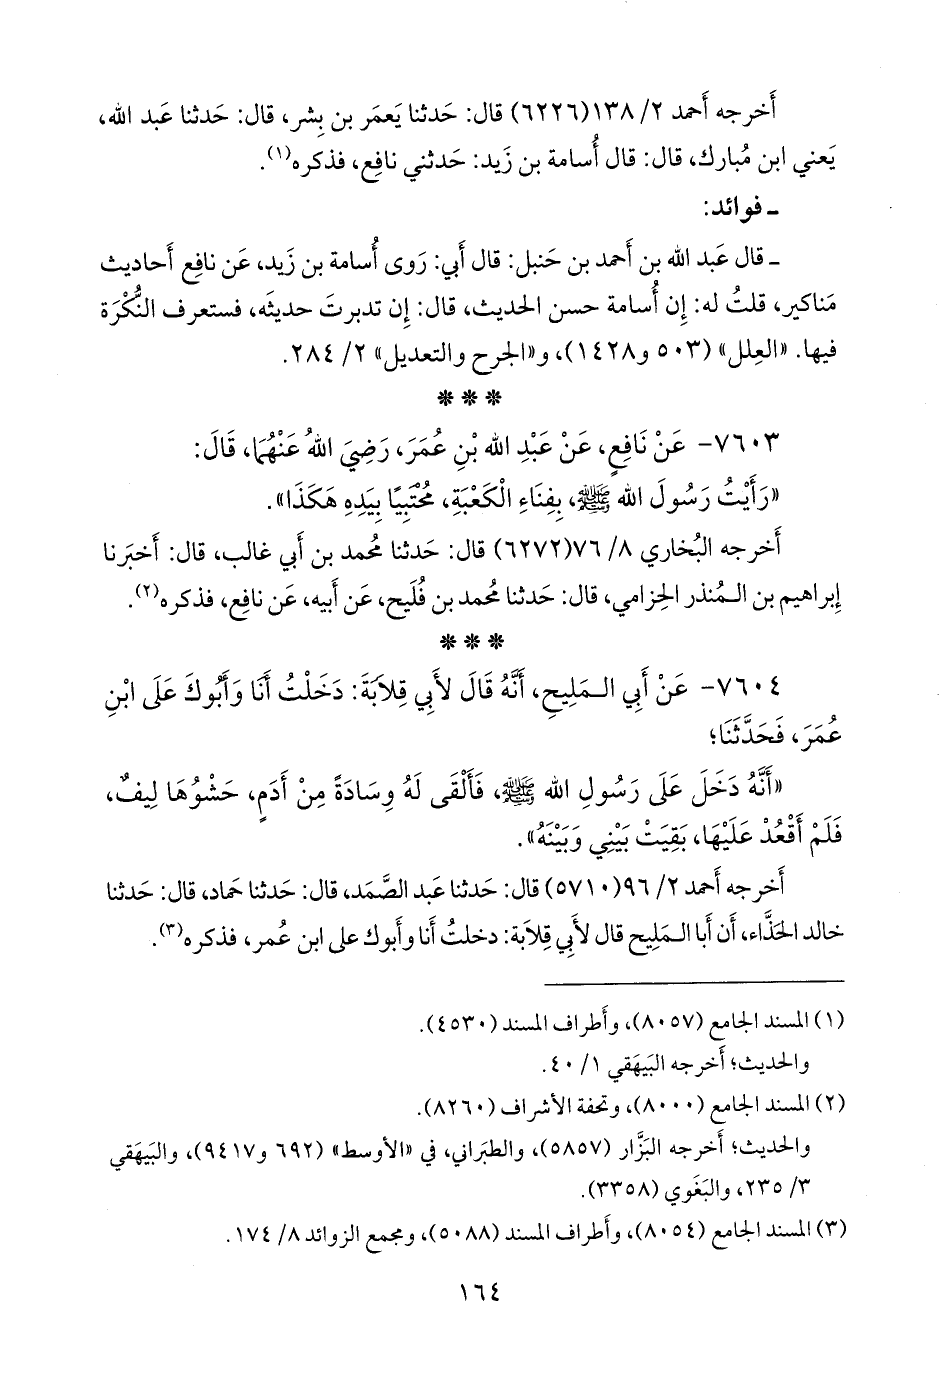 أَخرجه أَحمد ٢/ ١٣٨(٦٢٢٦) قال: حَدثنا يَعمَر بن بِشر، قال: حَدثنا عَبد الله،
يَعني ابن مُبارك، قال: قال أُسامة بن زَيد: حَدثني نافِع، فذكره(١).
ـ فوائد:
ـ قال عَبد الله بن أَحمد بن حَنبل: قال أَبي: رَوى أُسامة بن زَيد، عَن نافِع أَحاديث
مَناكير، قلتُ له: إِن أُسامة حسن الحديث، قال: إِن تدبرتَ حديثَه، فستعرف النُّكْرَة
فيها. «العِلل» (٥٠٣ و١٤٢٨)، و«الجرح والتعديل» ٢/ ٢٨٤.
* * *
٧٦٠٣- عَنْ نَافِعٍ، عَنْ عَبْدِ الله بْنِ عُمَرَ، رَضِيَ اللهُ عَنْهُمَا، قَالَ:
«رَأَيْتُ رَسُولَ الله ﷺ، بِفِنَاءِ الْكَعْبَةِ، مُحْتَبِيًا بِيَدِهِ هَكَذَا».
أَخرجه البُخاري ٨/ ٧٦(٦٢٧٢) قال: حَدثنا مُحمد بن أَبي غالب، قال: أَخبَرنا
إِبراهيم بن الـمُنذر الحِزامي، قال: حَدثنا مُحمد بن فُلَيح، عَن أَبيه، عَن نافِع، فذكره(٢).
* * *
٧٦٠٤- عَنْ أَبِي الـمَلِيحِ، أَنَّهُ قَالَ لأَبِي قِلاَبَةَ: دَخَلْتُ أَنَا وَأَبُوكَ عَلَى ابْنِ
عُمَرَ، فَحَدَّثَنَا؛
«أَنَّهُ دَخَلَ عَلَى رَسُولِ الله ﷺ، فَأَلْقَى لَهُ وِسَادَةً مِنْ أَدَمٍ، حَشْوُهَا لِيفٌ،
فَلَمْ أَقْعُدْ عَلَيْهَا، بَقِيَتْ بَيْنِي وَبَيْنَهُ».
أَخرجه أَحمد ٢/ ٩٦(٥٧١٠) قال: حَدثنا عَبد الصَّمَد، قال: حَدثنا حَماد، قال: حَدثنا
خالد الحَذَّاء، أَن أَبا الـمَلِيح قال لأَبي قِلاَبة: دخلتُ أَنا وأَبوك على ابن عُمر، فذكره(٣).
(١) المسند الجامع (٨٠٥٧)، وأَطراف المسند (٤٥٣٠).
والحديث؛ أَخرجه البَيهَقي ١/ ٤٠.
(٢) المسند الجامع (٨٠٠٠)، وتحفة الأَشراف (٨٢٦٠).
والحديث؛ أَخرجه البَزَّار (٥٨٥٧)، والطبَراني، في «الأَوسط» (٦٩٢ و٩٤١٧)، والبَيهَقي
٣/ ٢٣٥، والبَغَوي (٣٣٥٨).
(٣) المسند الجامع (٨٠٥٤)، وأَطراف المسند (٥٠٨٨)، ومجمع الزوائد ٨/ ١٧٤.
١٦٤